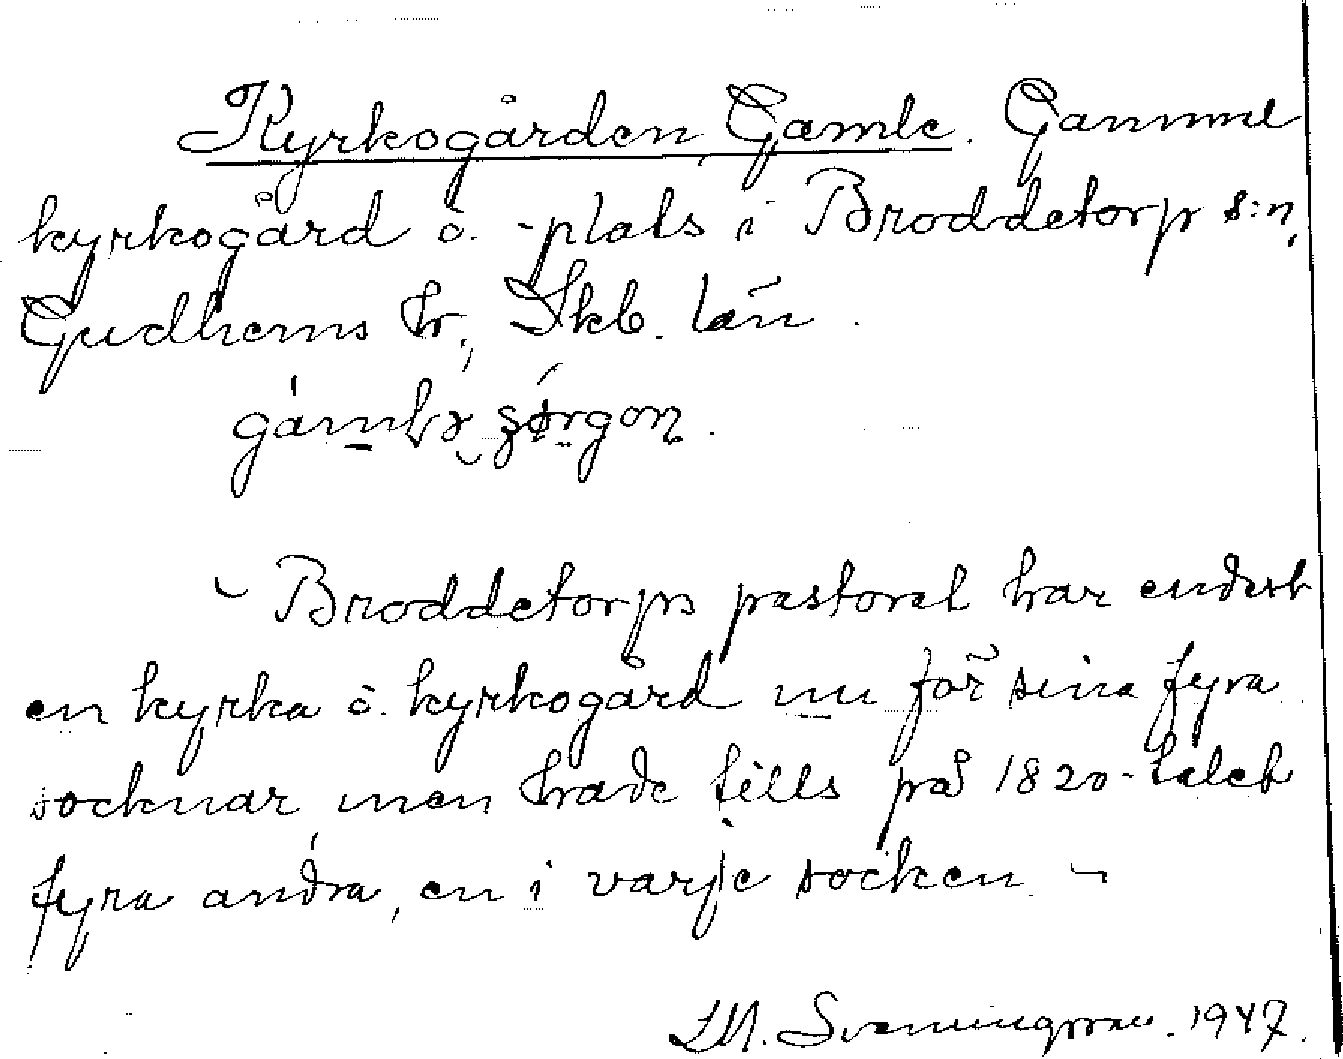 Kyrkogården, Gamle. Gammel
kyrkogård o. -plats i Broddetorp s:n,
Gudhems hr, Skb. län.
Broddetorps pastorat har endast
en kyrka o. kyrkogård nu för sina fyra
socknar, men hade tills på 1820-talet
fyra andra, en i varje socken
M. Svenningsson. 1947.